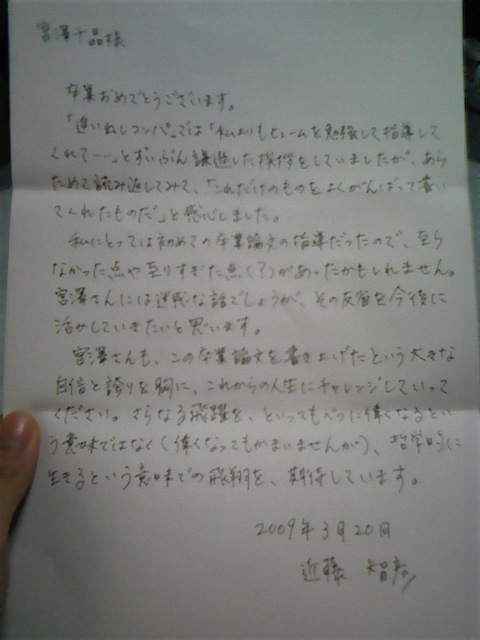 宮澤千晶様
卒業おめでとうございます。
「追い出しコンパ」では「私よりもヒュームを勉強して指導して
くれて……」とずいぶん謙遜した挨拶をしていましたが、あら
ためて読み返してみて、「これだけのものをよくがんばって書い
てくれたものだ」と感心しました。
私にとっては初めての卒業論文の指導だったので、至ら
なかった点や至りすぎた点(?)があったかもしれません。
宮澤さんには迷惑な話でしょうが、その反省を今後に
活かしていきたいと思います。
宮澤さんも、この卒業論文を書き上げたという大きな
自信と誇りを胸に、これからの人生にチャレンジしていって
ください。さらなる飛躍を、といってもべつに偉くなるとい
う意味ではなく(偉くなってもかまいませんが)、哲学的に
生きるという意味での飛翔を、期待しています。
2009年3月20日
近藤 智彦